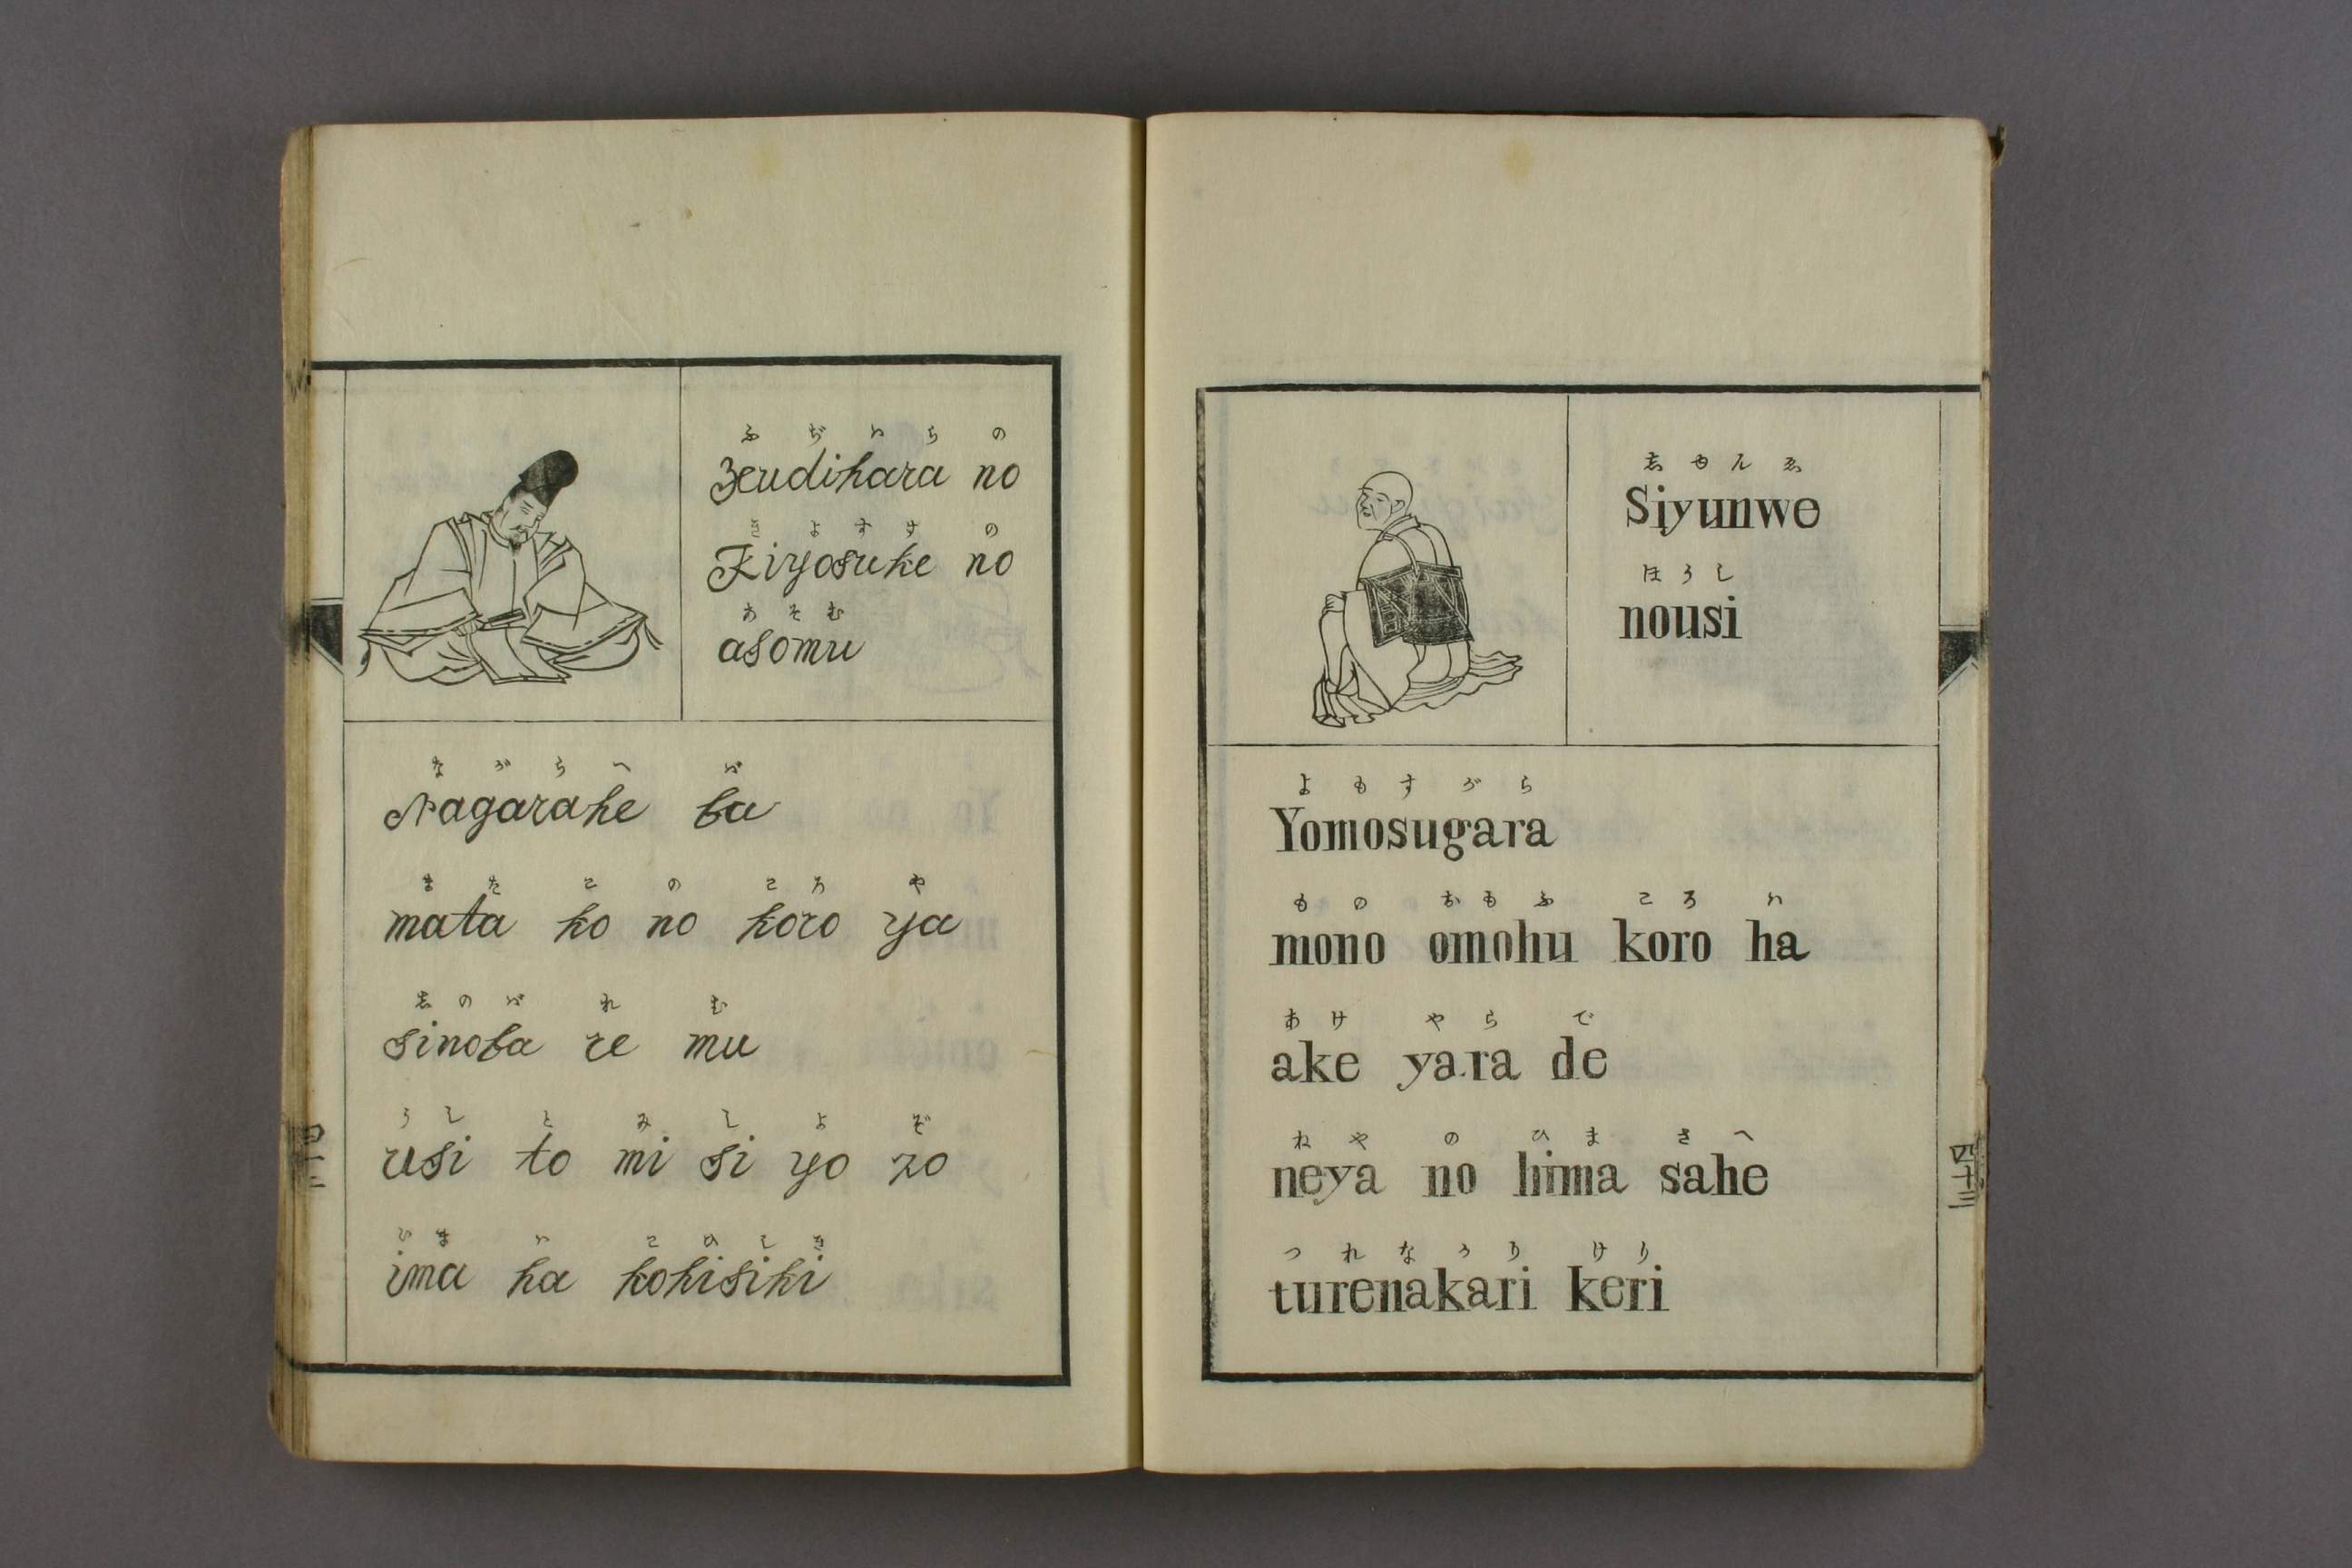 ふぢはらの
Feudihara no
きよすけの
Kiyosuke no
あそむ
asomu
ながらへば
Nagarahe ba
またこのころや
mata ko no koro ya
志のばれむ
sinoba re mu
うしとみしよぞ
usi to mi si yo zo
いまはこひしき
ima ha kohisiki
四十二
志ゆんゑ
Siyunwe
ほうし
nousi
よもすがら
Yomosugara
ものおもふころハ
mono omohu koro ha
あけやらで
ake yara de
ねやのひまさへ
neya no hima sahe
つれなかりけり
turenakari keri
四十三